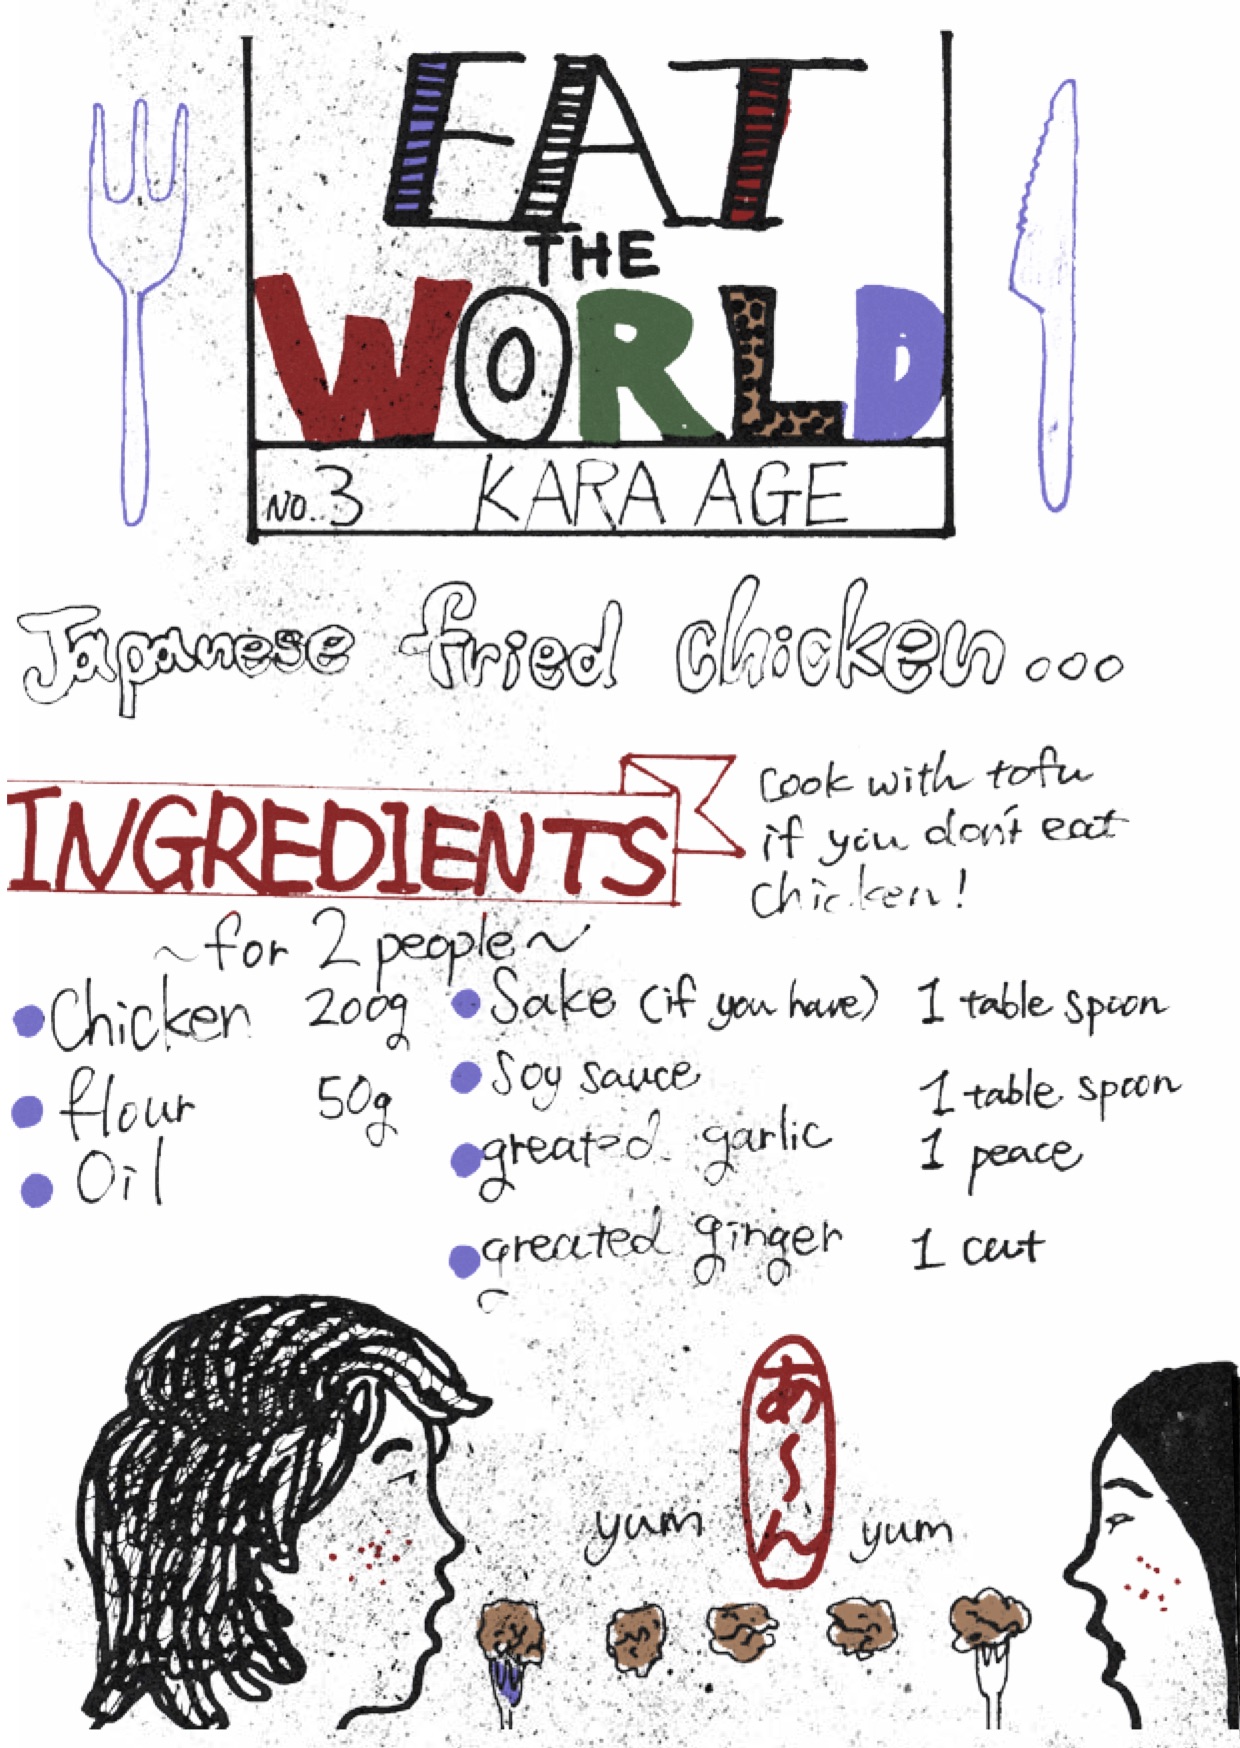 EAT
THE
WORLD
NO.3 KARA AGE
Japanese fried chicken...
INGREDIENTS
Cook with tofu
if you don't eat
chicken!
~for 2 people~
Chicken 200g
flour 50g
Oil
Sake (if you have) 1 table spoon
Soy sauce 1 table spoon
greated garlic 1 peace
greated ginger 1 cut
あ〜ん
yum yum